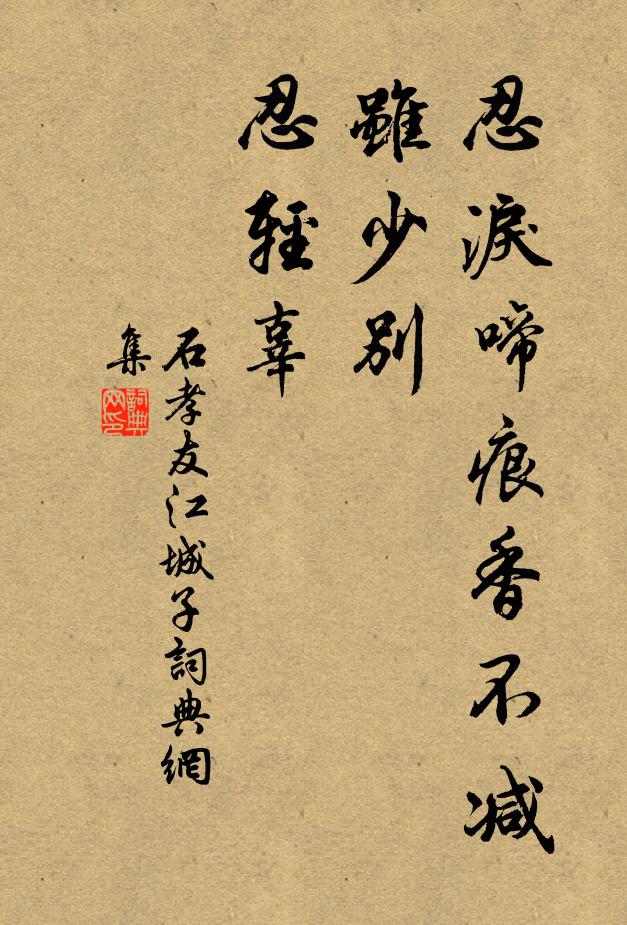 忍淚啼痕香不減
雖少別
忍輕辜
石孝友江城子詞典網
集
詞典網印